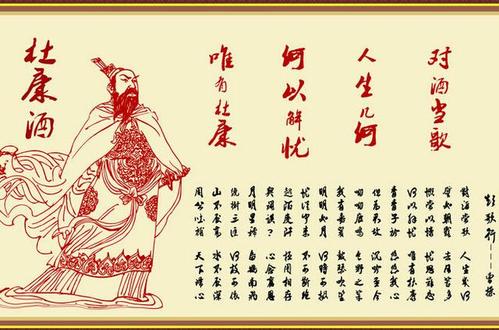 对酒当歌
人生几何
何以解忧
唯有杜康
杜康酒
短歌行——曹操
对酒当歌 人生几何
譬如朝露 去日苦多
慨当以慷 忧思难忘
何以解忧 唯有杜康
青青子衿 悠悠我心
但为君故 沉吟至今
呦呦鹿鸣 食野之苹
我有嘉宾 鼓瑟吹笙
明明如月 何时可掇
忧从中来 不可断绝
越陌度阡 枉用相存
契阔谈? 心念旧恩
月明星稀 乌鹊南飞
绕树三匝 何枝可依
山不厌高 水不厌深
周公吐哺 天下归心